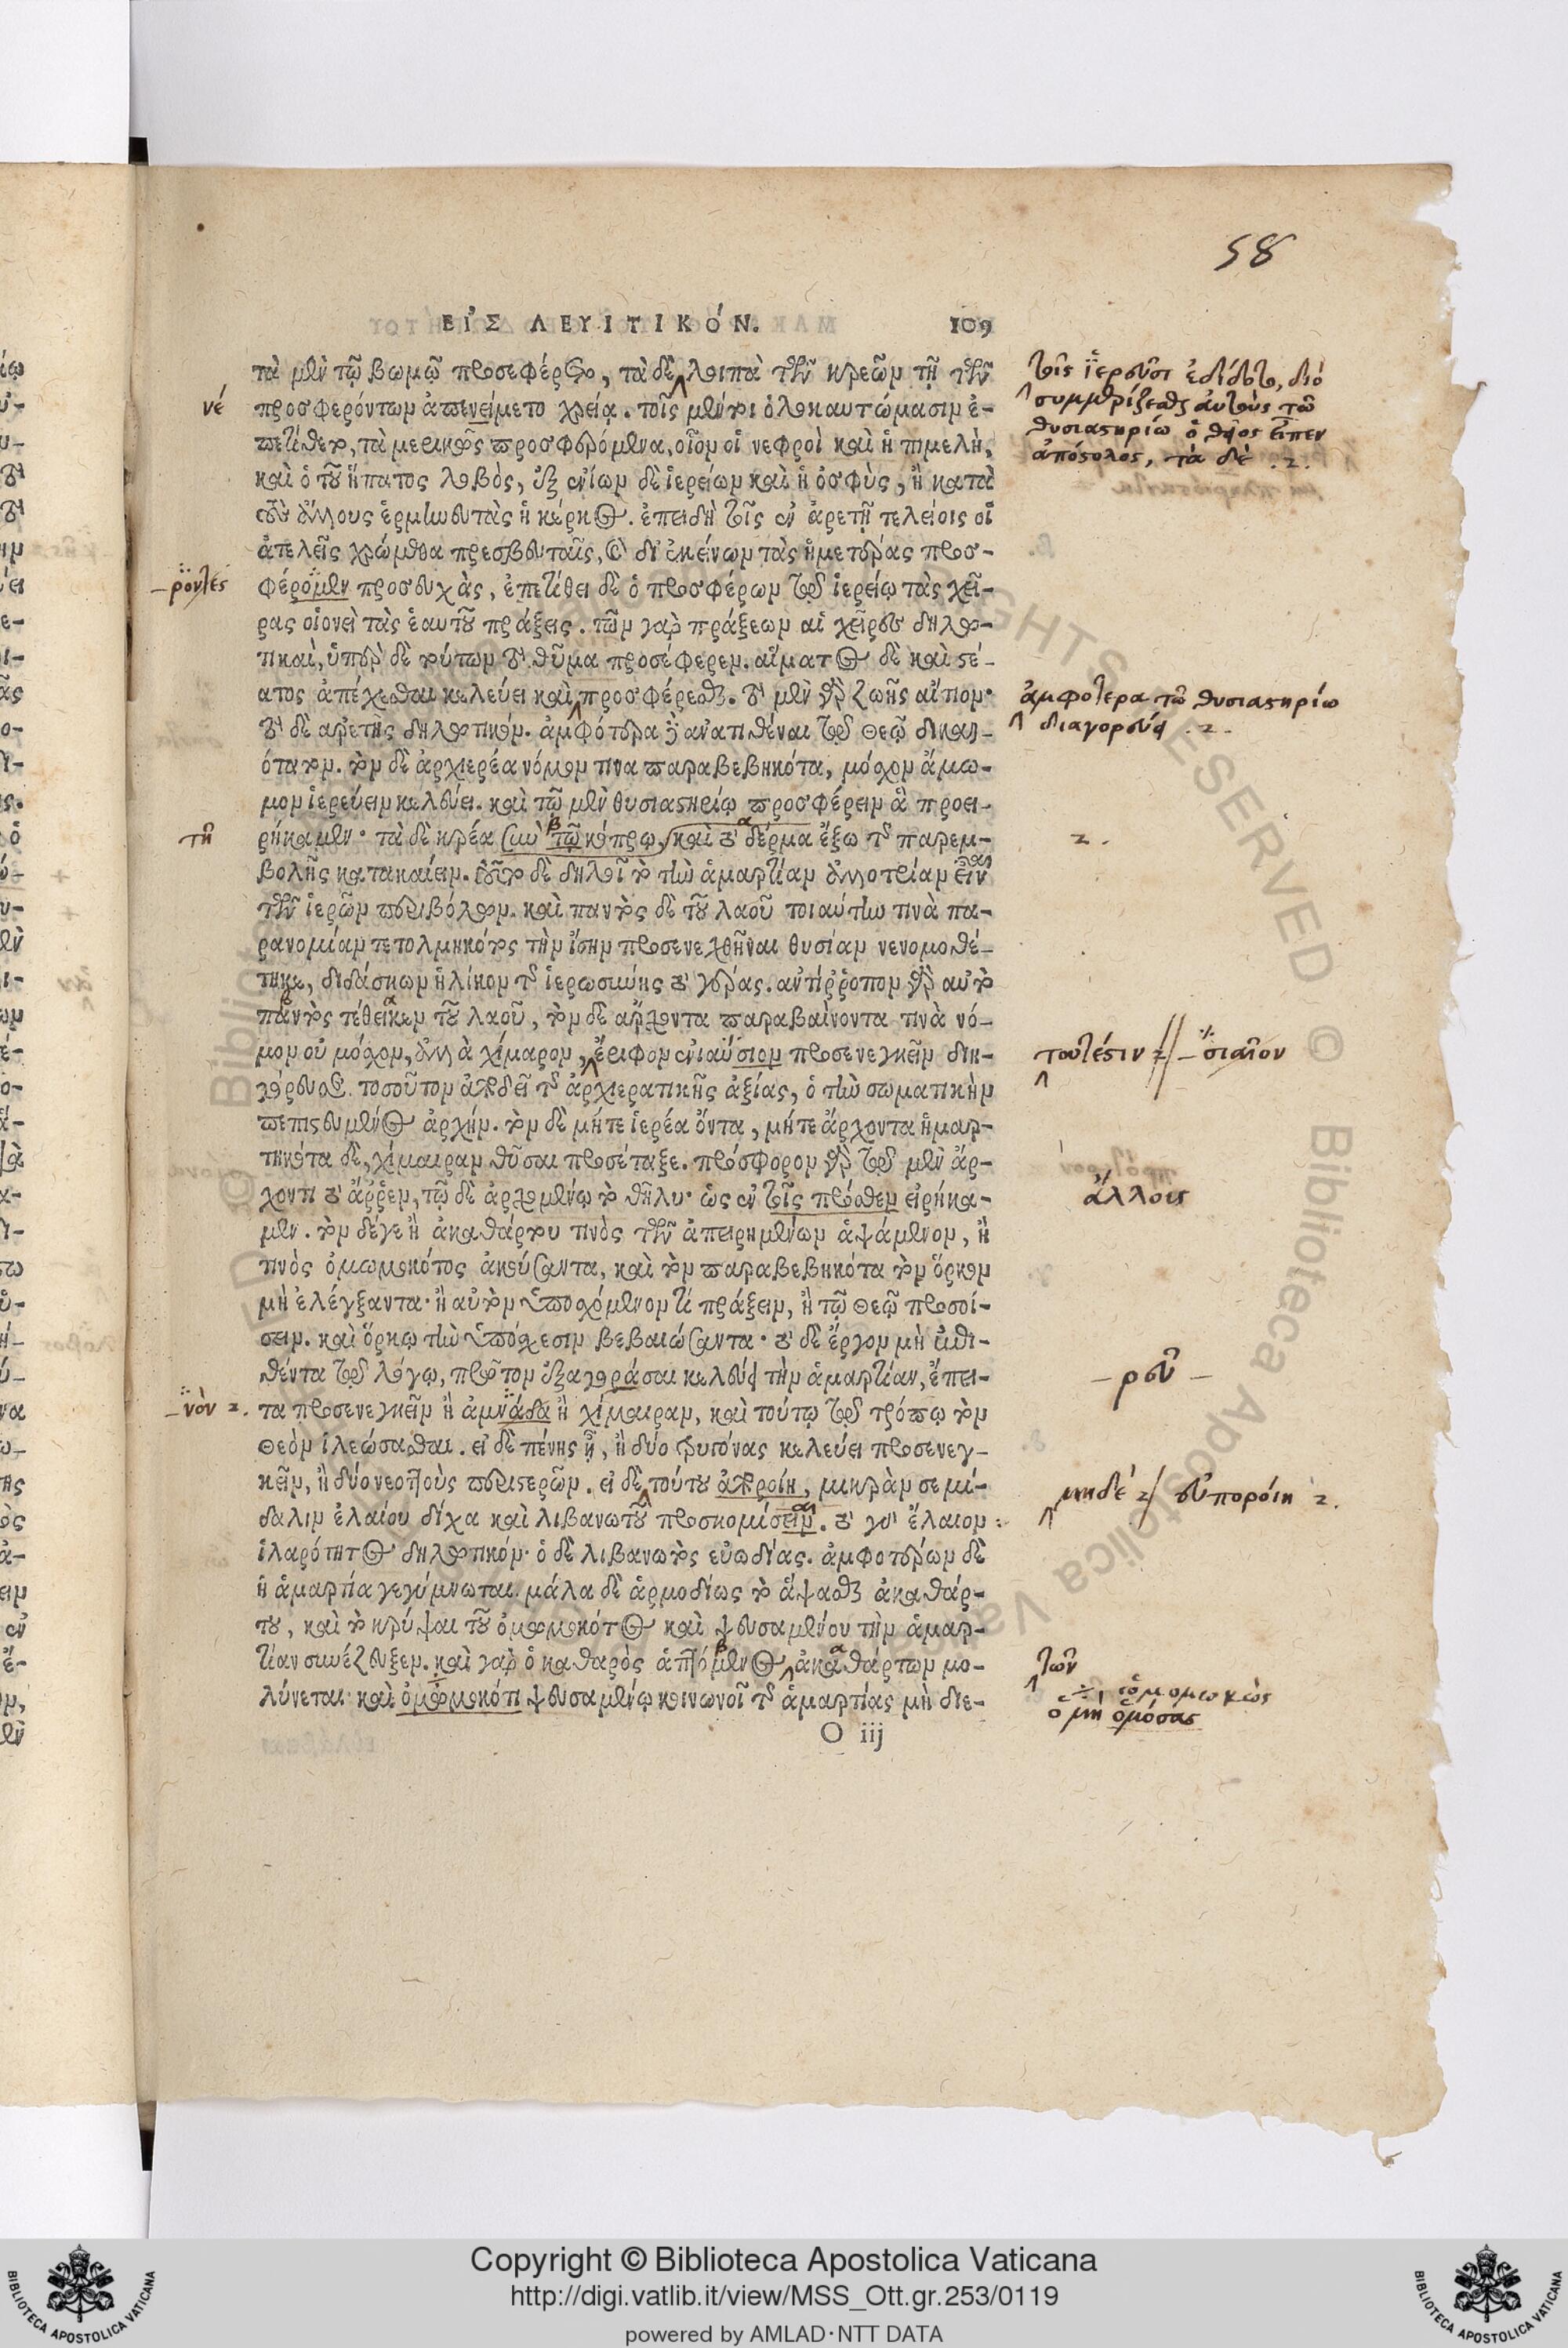 58
ΕἸΣ ΛΕΥΙΤΙΚΌΝ. 109
τὰ μὲν τῷ βωμῷ προσεφέρετο, τὰ δὲ λοιπὰ τῶν κρεῶν τῇ τῶν
προσφερόντων ἀπενείμετο χρείᾳ. τοῖς μέντοι ὁλοκαυτώμασιν ἐ-
πετίθετο, τὰ μερικῶς προσφερόμενα, οἷον οἱ νεφροὶ καὶ ἡ πιμελὴ,
καὶ ὁ τοῦ ἥπατος λοβὸς, ἐξ ἐνίων δὲ ἱερείων καὶ ἡ ὀσφὺς, ἢ κατὰ
τοὺς ἄλλους ἑρμηνευτὰς ἡ κέρκος. ἐπειδὴ τοῖς ἐν ἀρετῇ τελείοις οἱ
ἀτελεῖς χρώμεθα πρεσβευταῖς, καὶ δι' ἐκείνων τὰς ἡμετέρας προσ-
φέρομεν προσευχὰς, ἐπετίθει δὲ ὁ προσφέρων τῷ ἱερείῳ τὰς χεῖ-
ρας οἱονεὶ τὰς ἑαυτοῦ πράξεις. τῶν γὰρ πράξεων αἱ χεῖρες δηλω-
τικαὶ, ὑπὲρ δὲ τούτων τὸ θῦμα προσέφερεν. αἵματος δὲ καὶ στέ-
ατος ἀπέχεσθαι κελεύει καὶ προσφέρεσθαι. τὸ μὲν γὰρ ζωῆς αἴτιον·
τὸ δὲ ἀρετῆς δηλωτικόν. ἀμφότερα γὰρ ἀνατιθέναι τῷ Θεῷ δικαι-
ότατον. τὸν δὲ ἀρχιερέα νόμον τινα παραβεβηκότα, μόσχον ἄμω-
μον ἱερεύειν κελεύει. καὶ τῷ μὲν θυσιαστηρίῳ προσφέρειν ἃ προει-
ρήκαμεν· τὰ δὲ κρέα σὺν τῷ κόπρῳ, καὶ τὸ δέρμα ἔξω τῆς παρεμ-
βολῆς κατακαίειν. τοῦτο δὲ δηλοῖ τὸ τὴν ἁμαρτίαν ἀλλοτρίαν εἶναι
τῶν ἱερῶν περιβόλων. καὶ παντὸς δὲ τοῦ λαοῦ τοιαύτην τινὰ πα-
ρανομίαν τετολμηκότος τὴν ἴσην προσενεχθῆναι θυσίαν νενομοθέ-
τηκε, διδάσκων ἡλίκον τῆς ἱερωσύνης τὸ γέρας. ἀντίῤῥοπον γὰρ αὐτὸ
παντὸς τέθεικεν τοῦ λαοῦ, τὸν δὲ ἄρχοντα παραβαίνοντα τινὰ νό-
μον οὐ μόσχον, ἀλλὰ χίμαρον, ἔριφον ἐνιαύσιον προσενεγκεῖν διη-
γόρευσε. τοσοῦτον ἀποδεῖ τῆς ἀρχιερατικῆς ἀξίας, ὁ τὴν σωματικὴν
πεπιστευμένος ἀρχήν. τὸν δὲ μήτε ἱερέα ὄντα, μήτε ἄρχοντα ἡμαρ-
τηκότα δὲ, χίμαιραν θῦσαι προσέταξε. πρόσφορον γὰρ τῷ μὲν ἄρ-
χοντι τὸ ἄῤῥεν, τῷ δὲ ἀρχομένῳ τὸ θῆλυ· ὡς ἐν τοῖς πρόσθεν εἰρήκα-
μεν. τὸν δέγε ἢ ἀκαθάρτου τινὸς τῶν ἀπειρημένων ἁψάμενον, ἢ
τινὸς ὀμωμοκότος ἀκούσαντα, καὶ τὸν παραβεβηκότα τὸν ὅρκον
μὴ ἐλέγξαντα· ἢ αὐτὸν ὑποσχόμενον τὶ πράξειν, ἢ τῷ Θεῷ προσοί-
σειν. καὶ ὅρκῳ τὴν ὑπόσχεσιν βεβαιώσαντα· τὸ δὲ ἔργον μὴ ἐπιθι-
θέντα τῷ λόγῳ, πρῶτον ἐξαγοράσαι κελεύει τὴν ἁμαρτίαν, ἔπει-
τα προσενεγκεῖν ἢ ἀμνάδα ἢ χίμαιραν, καὶ τούτῳ τῷ τρόπῳ τὸν
Θεὸν ἱλεώσασθαι. εἰ δὲ πένης ᾖ, ἢ δύο τρυγόνας κελεύει προσενεγ-
κεῖν, ἢ δύο νεοττοὺς περιστερῶν. εἰ δὲ τούτου ἀποροίη, μικρὰν σεμί-
δαλιν ἐλαίου δίχα καὶ λιβανωτοῦ προσκομίσειν. τὸ γὰρ ἔλαιον
ἱλαρότητος δηλωτικόν· ὁ δὲ λιβανωτὸς εὐωδίας. ἀμφοτέρων δὲ
ἡ ἁμαρτία γεγύμνωται. μάλα δὲ ἁρμοδίως τὸ ἅψασθαι ἀκαθάρ-
του, καὶ τὸ κρύψαι τοῦ ὀμωμοκότος καὶ ψευσαμένου τὴν ἁμαρ-
τίαν συνέζευξεν. καὶ γὰρ ὁ καθαρὸς ἁπτόμενος ἀκαθάρτων μο-
λύνεται· καὶ ὀμωμοκότι ψευσαμένῳ κοινωνοῖ τῆς ἁμαρτίας μὴ διε-
O iij
νέ
-ρόντες
τῆ
-νὸν 2.
τοῖς ἱερεῦσι ἐδίδοτο, διό
συμμερίζεσθαι αὐτοὺς τῶ
θυσιαστηρίω ὁ θεῖος εἶπεν
ἀπόστολος, τὰ δέ .2.
ἀμφότερα τῶ θυσιαστηρίω
διαγορεύει .2.
2.
τουτέστιν 2// -σιαῖον
ἄλλοις
-ρεῦ-
μηδέ 2/ εὐποροίη 2.
τῶν
ὁ μὴ ὀμόσας
Copyright © Biblioteca Apostolica Vaticana
http://digi.vatlib.it/view/MSS_Ott.gr.253/0119
powered by AMLAD·NTT DATA
BIBLIOTECA APOSTOLICA VATICANA
BIBLIOTECA APOSTOLICA VATICANA